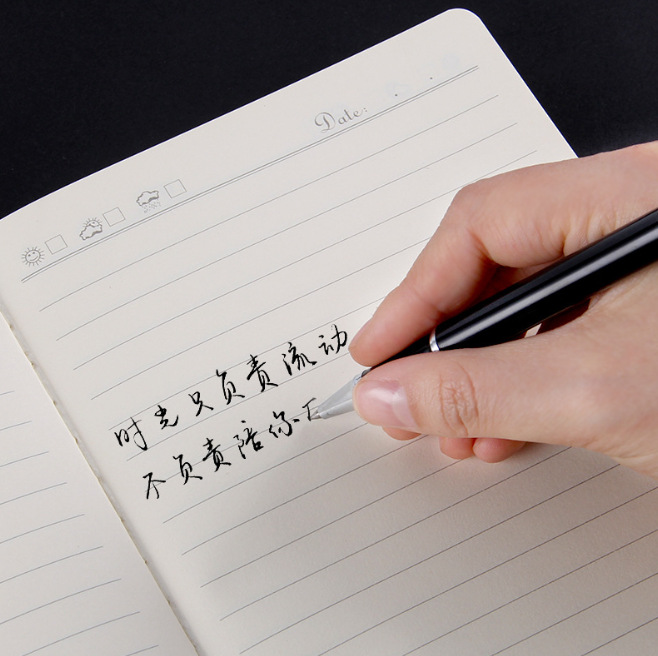 Date:
时光只负责流动
不负责陪你